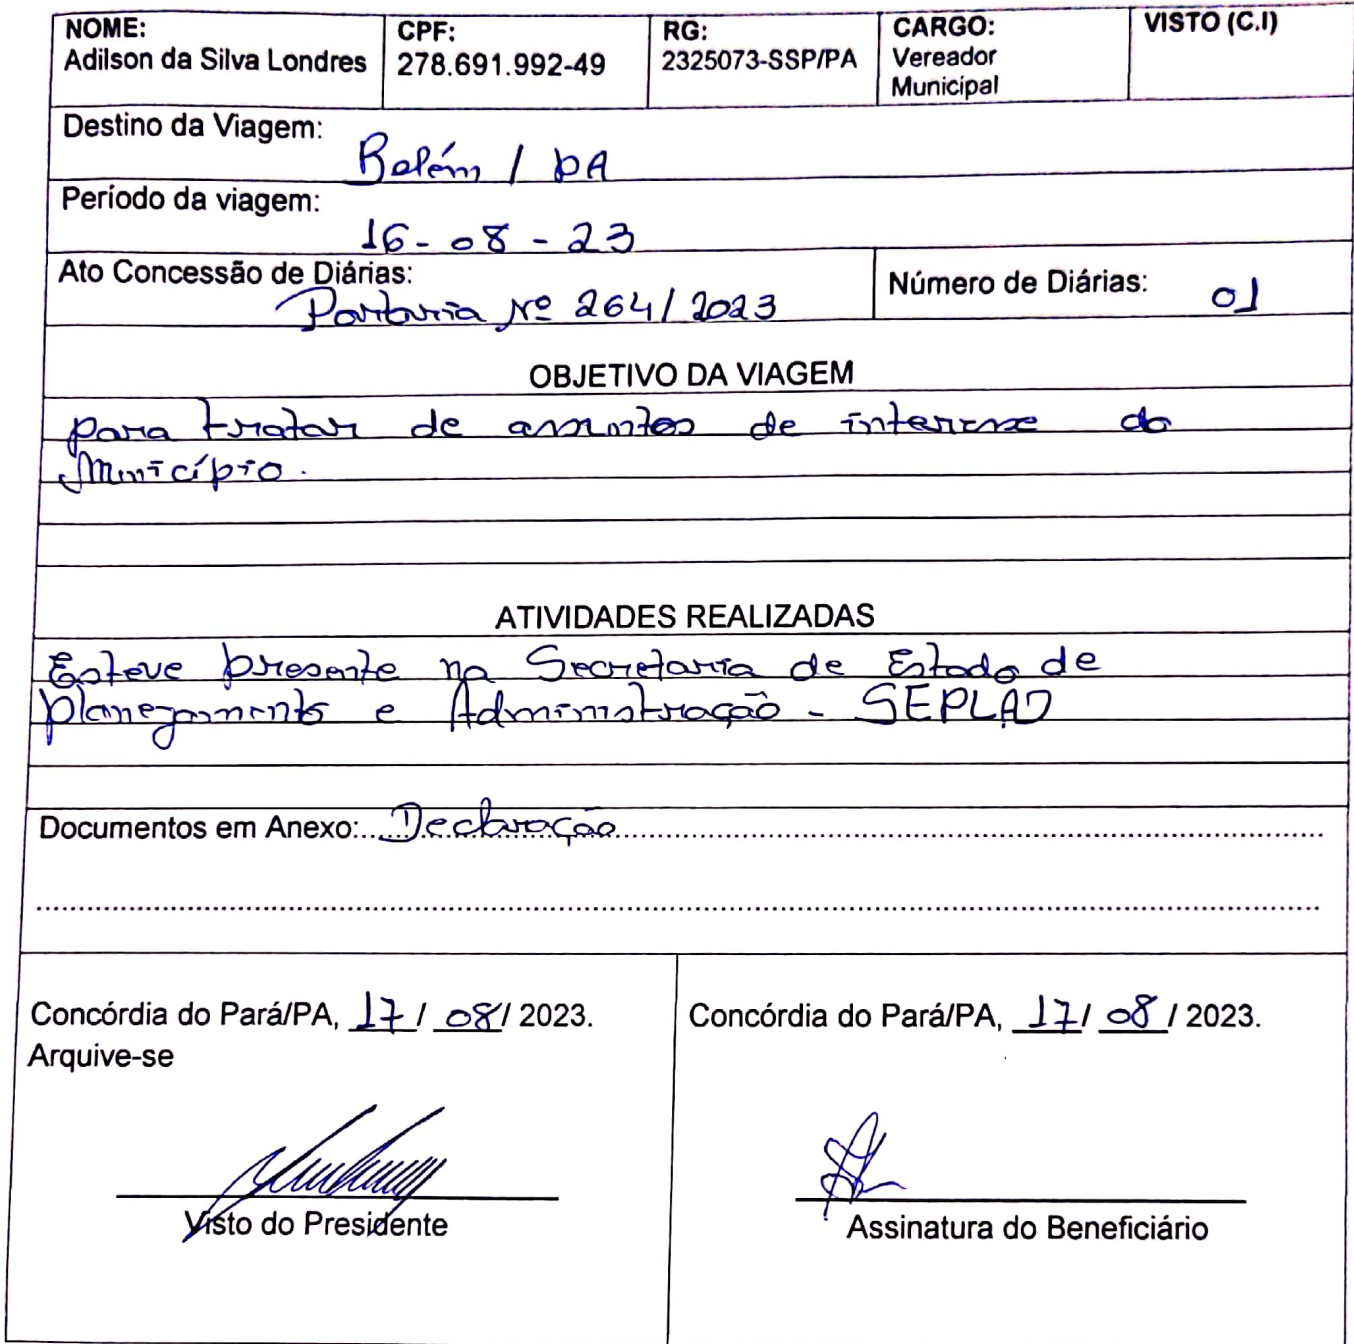 NOME: CPF: RG: CARGO: VISTO (C.I)
Adilson da Silva Londres 278.691.992-49 2325073-SSP/PA Vereador
Municipal
Destino da Viagem:
Belém / PA
Período da viagem:
16-08-23
Ato Concessão de Diárias: Número de Diárias: 01
Portaria Nº 264/2023
OBJETIVO DA VIAGEM
para tratar de assuntos de interesse do
Município.
ATIVIDADES REALIZADAS
Esteve presente na Secretaria de Estado de
planejamento e Administração - SEPLAD
Documentos em Anexo: Declaração
Concórdia do Pará/PA, 17/ 08/ 2023.
Arquive-se
Visto do Presidente
Concórdia do Pará/PA, 17/ 08 / 2023.
Assinatura do Beneficiário